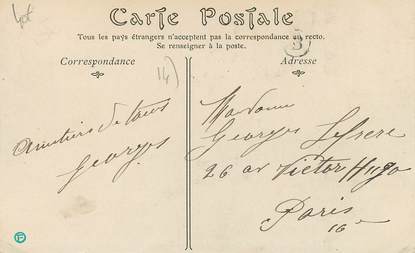 Lot
Carte Postale
Tous les pays étrangers n'acceptent pas la correspondance au recto.
Se renseigner à la poste.
Correspondance
Adresse
14)
Amitiés de tous
Georges
Madame
Georges Lefrere
26 av Victor Hugo
Paris
16e